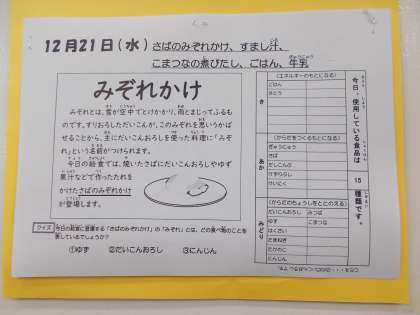 12月21日(水) さばのみぞれかけ、すまし汁、
こまつなの煮びたし、ごはん、牛乳
みぞれかけ
みぞれとは、雪が空中でとけかかり、雨とまじってふるも
のです。すりおろしただいこんが、このみぞれを思いうかば
せることから、主にだいこんおろしを使った料理に「みぞ
れ」という名前がつけられます。
今日の給食では、焼いたさばにだいこんおろしやゆず
果汁などで作ったたれを
かけたさばのみぞれかけ
が登場します。
クイズ 今日の給食に登場する「さばのみぞれかけ」の「みぞれ」とは、どの食べ物のことを
表しているでしょうか?
①ゆず ②だいこんおろし ③にんじん
今日、使用している食品は 15 種類です。
き
(エネルギーのもとになる)
ごはん
さとう
あか
(からだをつくるもとになる)
ぎゅうにゅう
さば
だしこんぶ
けずりぶし
みどり
(からだのちょうしをととのえる)
だいこんおろし みつば
ゆず こまつな
はくさい
たまねぎ
たけのこ
にんじん